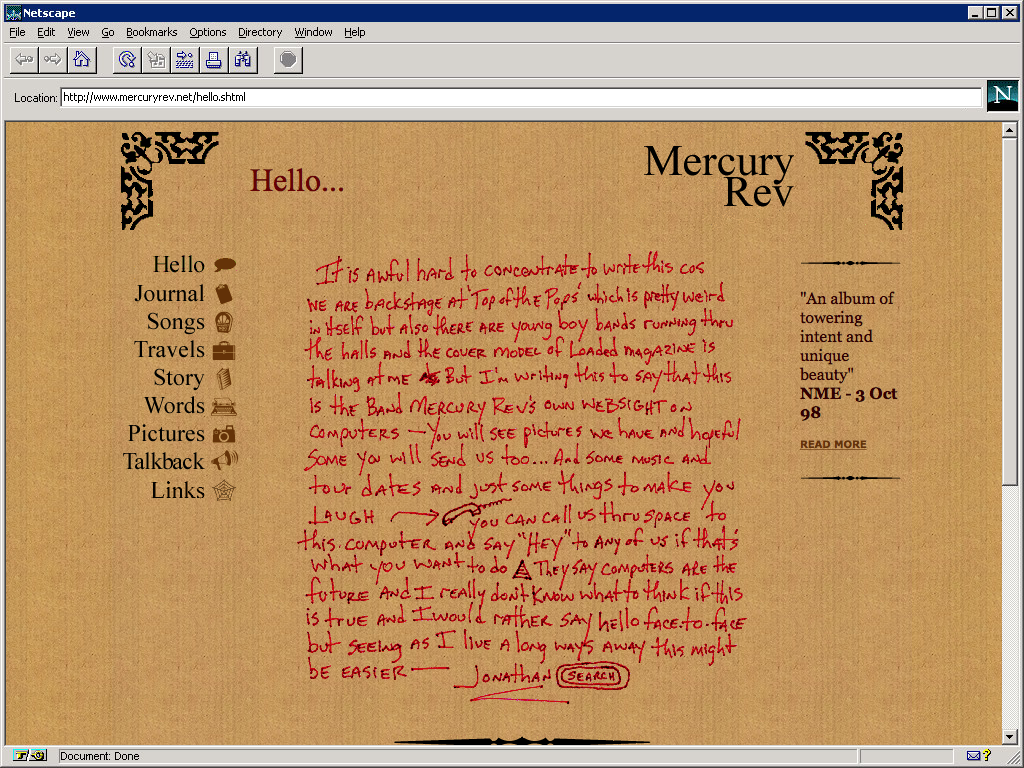 Netscape
File Edit View Go Bookmarks Options Directory Window Help
Location: http://www.mercuryrev.net/hello.shtml
N
Hello...
Mercury
Rev
Hello
Journal
Songs
Travels
Story
Words
Pictures
Talkback
Links
It is awful hard to concentrate to write this cos
we are backstage at 'Top of the Pops' which is pretty weird
in itself but also there are young boy bands running thru
the halls and the cover model of Loaded magazine is
talking at me But I'm writing this to say that this
is the Band Mercury Rev's own websight on
computers — You will see pictures we have and hopeful
some you will send us too... And some music and
tour dates and just some things to make you
Laugh
you can call us thru space to
this computer and say "Hey" to any of us if that's
what you want to do They say computers are the
future and I really don't know what to think if this
is true and I would rather say hello face-to-face
but seeing as I live a long ways away this might
be easier — Jonathan SEARCH
"An album of
towering
intent and
unique
beauty"
NME - 3 Oct
98
READ MORE
Document: Done